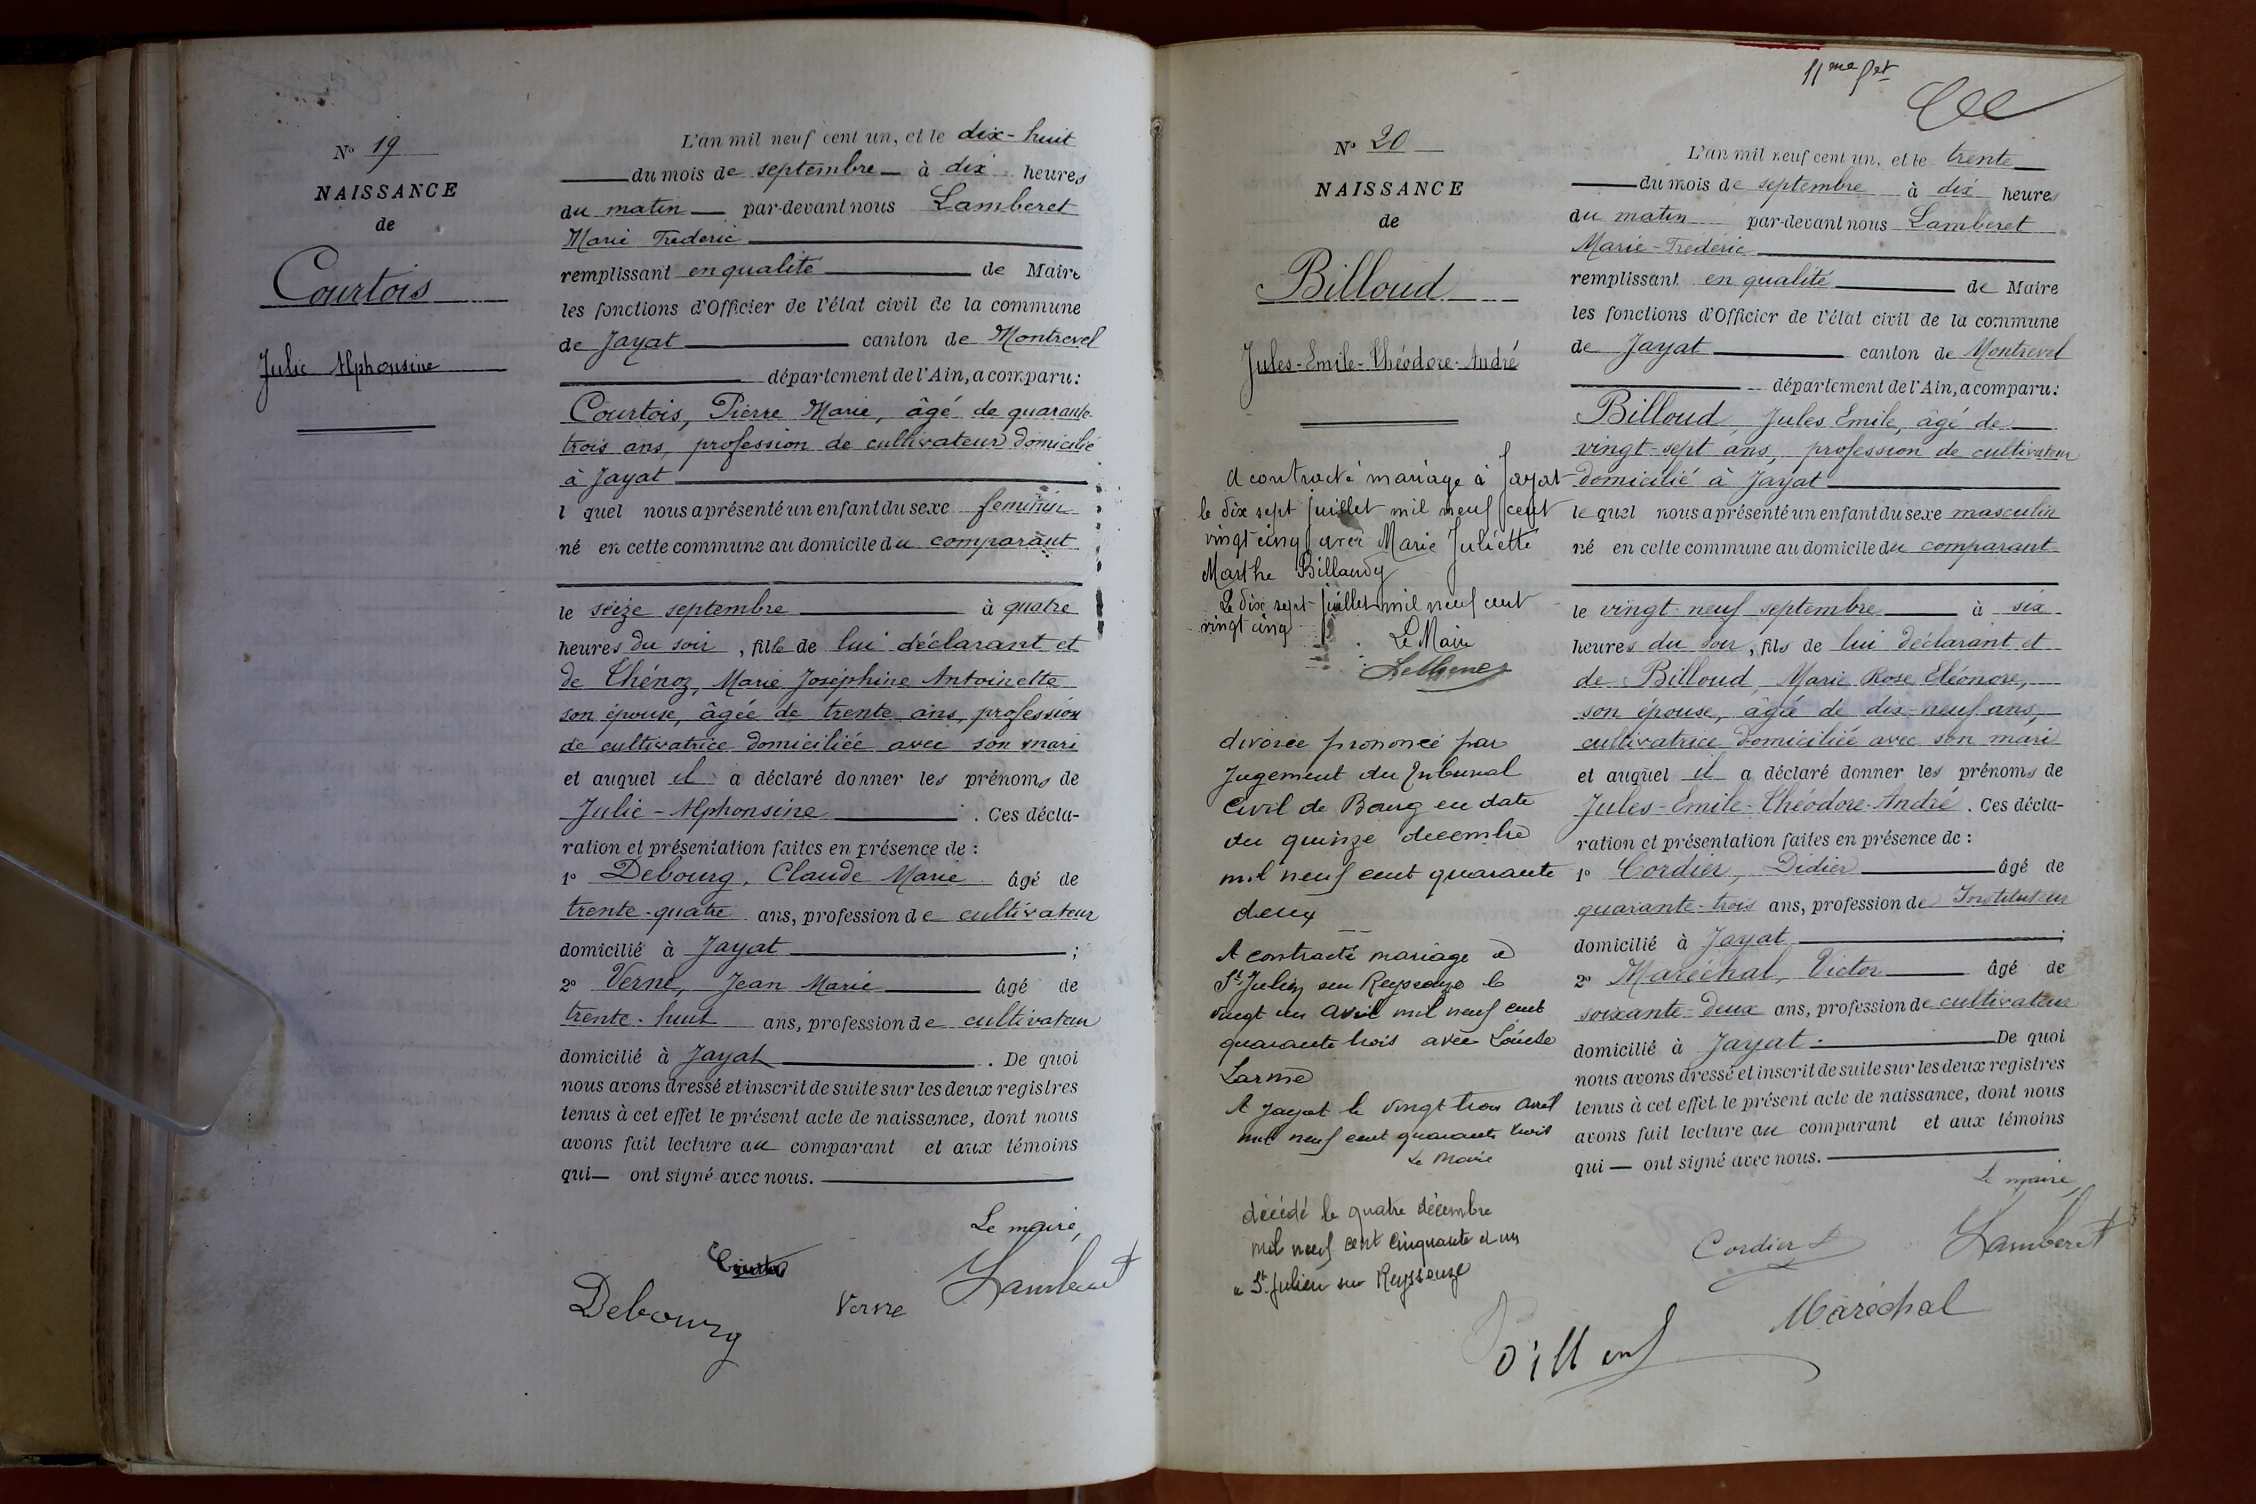 N° 19
NAISSANCE
de
Courtois
Julie Alphonsine
L'an mil neuf cent un, et le dix-huit
du mois de septembre à dix heures
du matin par-devant nous Lamberet
Marie Frédéric
remplissant en qualité de Maire
les fonctions d'Officier de l'état civil de la commune
de Jayat canton de Montrevel
département de l'Ain, a comparu:
Courtois, Pierre Marie, âgé de quarante-
trois ans, profession de cultivateur domicilié
à Jayat
l quel nous a présenté un enfant du sexe feminin
né en cette commune au domicile du comparant
le seize septembre à quatre
heures du soir, fille de lui déclarant et
de Thénoz, Marie Joséphine Antoinette
son épouse, âgée de trente ans, profession
de cultivatrice domiciliée avec son mari
et auquel il a déclaré donner les prénoms de
Julie-Alphonsine. Ces décla-
ration et présentation faites en présence de:
1° Debourg, Claude Marie âgé de
trente-quatre ans, profession de cultivateur
domicilié à Jayat;
2° Verne, Jean Marie âgé de
trente-huit ans, profession de cultivateur
domicilié à Jayat. De quoi
nous avons dressé et inscrit de suite sur les deux registres
tenus à cet effet le présent acte de naissance, dont nous
avons fait lecture au comparant et aux témoins
qui ont signé avec nous.
Le maire,
Debourg Verne Lamberet
11me fet
N° 20
NAISSANCE
de
Billoud
Jules-Emile-Théodore-André
A contracté mariage à Jayat
le dix sept juillet mil neuf cent
vingt cinq avec Marie Juliette
Marthe Billaudy
Le dix sept juillet mil neuf cent
vingt cinq
Le Maire
divorce prononcé par
Jugement du Tribunal
Civil de Bourg en date
du quinze decembre
mil neuf cent quarante
deux
A contracté mariage à
St Julien sur Reyssouze le
vingt un avril mil neuf cent
quarante trois avec Louise
Larme
A Jayat le vingt trois avril
mil neuf cent quarante trois
Le Maire
décédé le quatre décembre
mil neuf cent cinquante et un
à St Julien sur Reyssouze
L'an mil neuf cent un, et le trente
du mois de septembre à dix heures
du matin par-devant nous Lamberet
Marie-Frédéric
remplissant en qualité de Maire
les fonctions d'Officier de l'état civil de la commune
de Jayat canton de Montrevel
département de l'Ain, a comparu:
Billoud Jules Emile, âgé de
vingt-sept ans, profession de cultivateur
domicilié à Jayat
le quel nous a présenté un enfant du sexe masculin
né en cette commune au domicile du comparant
le vingt-neuf septembre à six
heures du soir, fils de lui déclarant et
de Billoud, Marie Rose Eléonore,
son épouse, âgée de dix-neuf ans,
cultivatrice domiciliée avec son mari
et auquel il a déclaré donner les prénoms de
Jules-Emile-Théodore-André. Ces décla-
ration et présentation faites en présence de:
1° Cordier, Didier âgé de
quarante-trois ans, profession de Instituteur
domicilié à Jayat;
2° Maréchal, Victor âgé de
soixante-deux ans, profession de cultivateur
domicilié à Jayat. De quoi
nous avons dressé et inscrit de suite sur les deux registres
tenus à cet effet le présent acte de naissance, dont nous
avons fait lecture au comparant et aux témoins
qui ont signé avec nous.
Le maire,
Cordier D Lamberet
Maréchal
Billoud